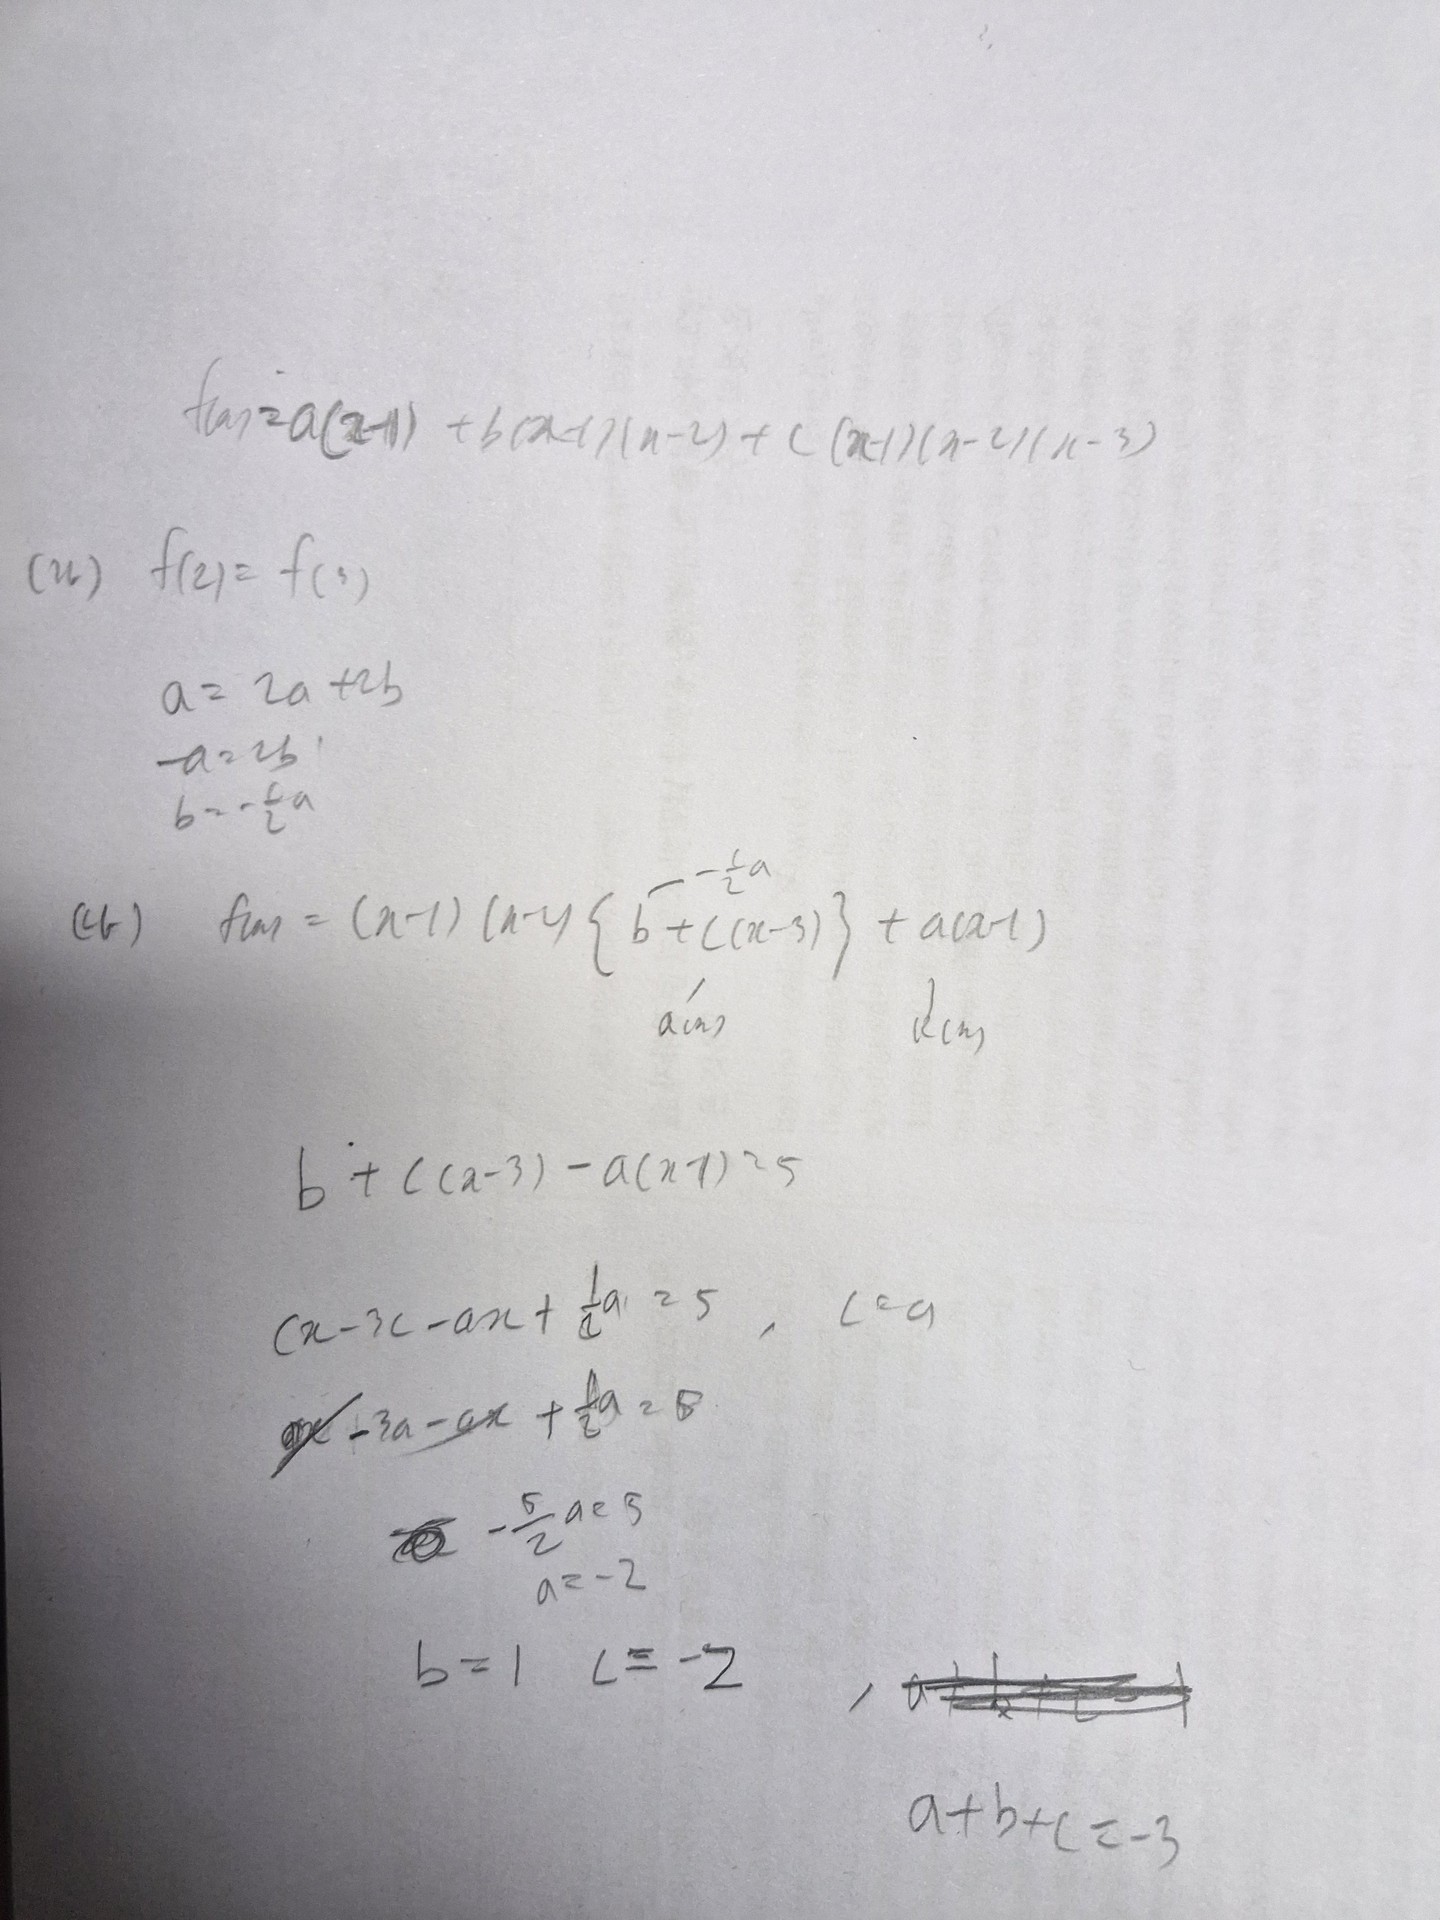 f(x)=a(x-1)+b(x-1)(x-2)+c(x-1)(x-2)(x-3)
f(2)=f(3)
a=2a+2b
-a=2b
b=-1/2a
-1/2a
f(x)=(x-1)(x-2){b+c(x-3)}+a(x-1)
b+c(x-3)-a(x-1)=5
cx-3c-ax+1/2a=5, c=a
-3a-ax+1/2a=5
-5/2a=5
a=-2
b=1 c=-2,
a+b+c=-3